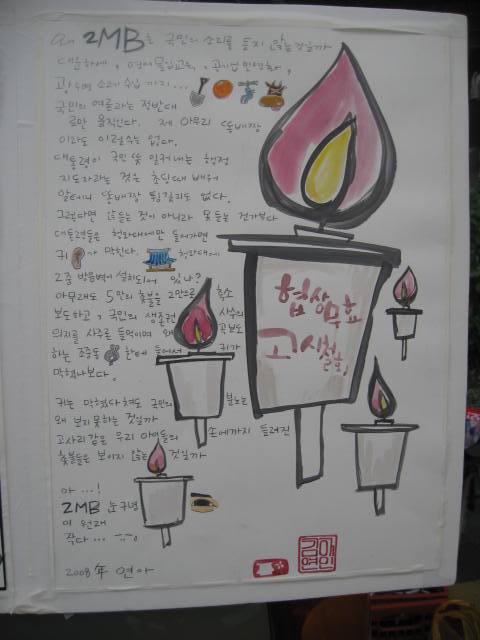 왜 2MB는 국민의 소리를 듣지 않는것일까
대운하에, 영어몰입교육, 공기업민영화,
광우병 소고기 수입 까지...
국민의 여론과는 정반대
로만 움직인다. 제 아무리 똥배짱
이라도 이럴수는 없다.
대통령이 국민 뜻 일러내는 행정
지도자라는 것은 초딩때 배워
알테니 똥배짱 튕길리도 없다.
그렇다면 안듣는 것이 아니라 못듣는 건가보다
대통령들은 청와대에만 들어가면
귀 가 막힌다. 청와대에
2중 방음벽이 설치되어 있나?
아무래도 5만의 촛불을 2만으로 축소
보도하고, 국민의 생존권 사수의
의지를 사주론 들먹이며 왜곡보도
하는 조중동 한테 들어서 귀가
막혔나보다.
귀는 막혔다쳐도 국민의 분노는
왜 보지못하는 것일까
고사리같은 우리 아이들의 손에까지 들려진
촛불들은 보이지 않는 것일까
아...!
2MB 눈구녕
이 원래
작다...
2008年 연아
협상무효
고시철회!